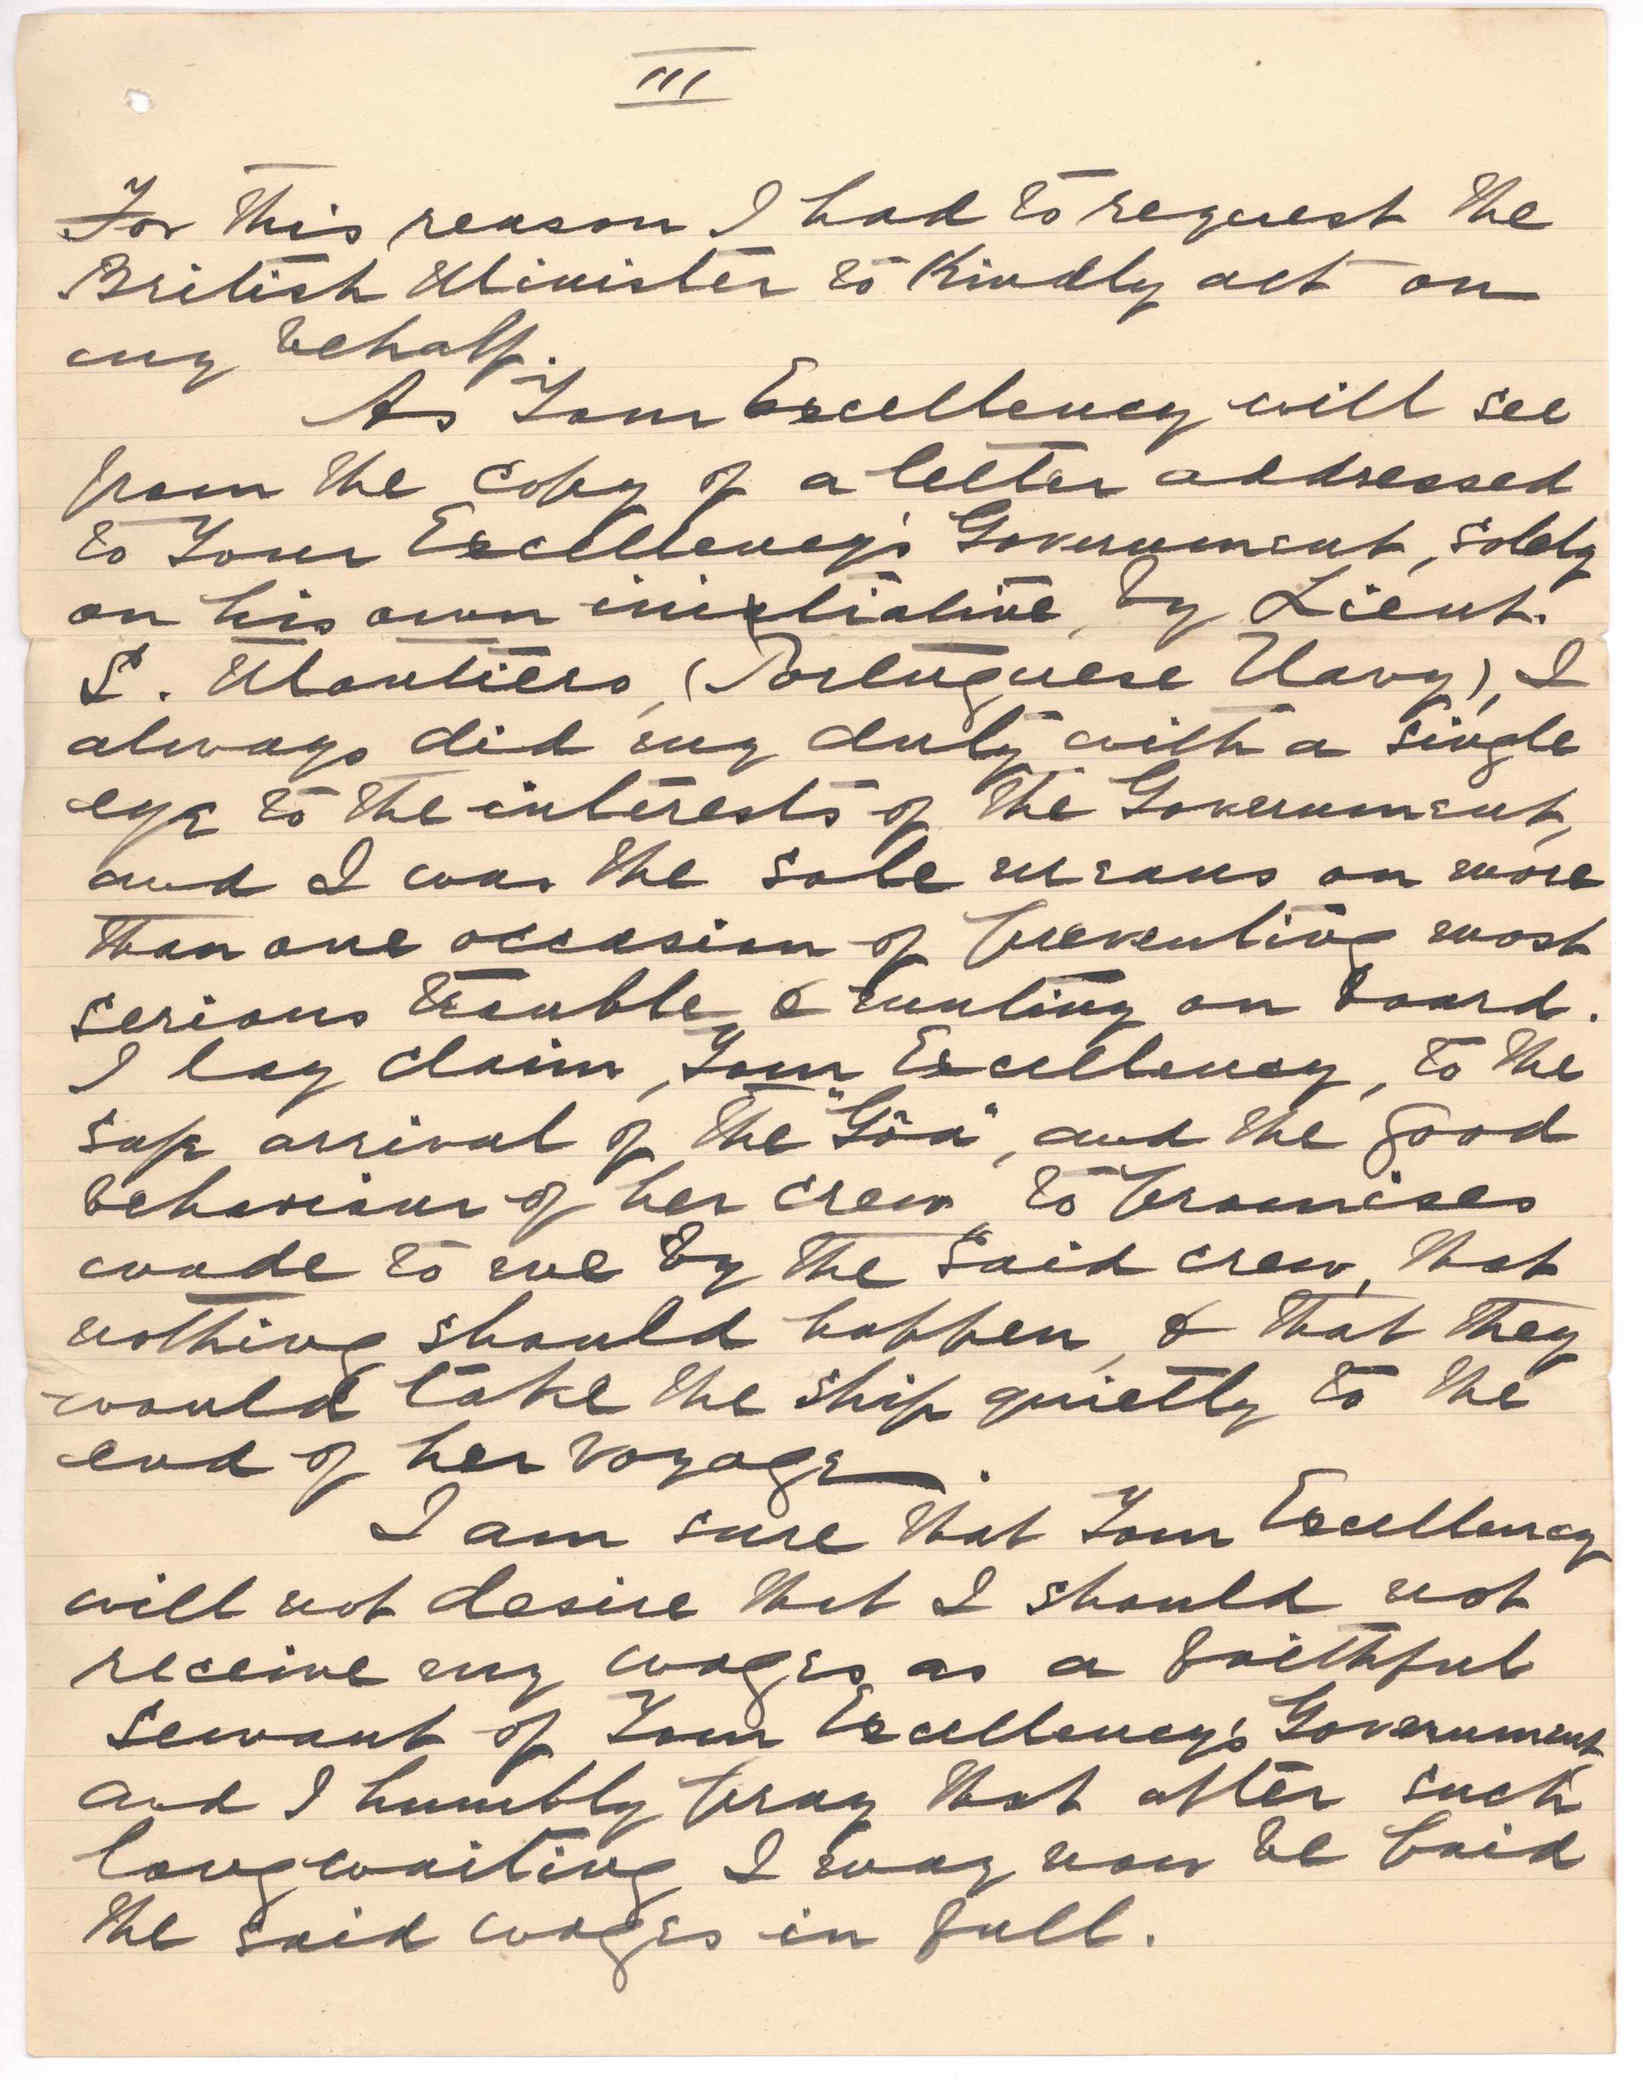 III
For this reason I had to request the
British Minister to Kindly act on
my behalf.
As Your Excellency will see
from the copy of a letter addressed
to Your Excellency's Government, solely
on his own initiative, by Lieut.
S. Monteiro, (Portuguese Navy), I
always did my duty with a single
eye to the interests of the Government,
and I was the sole means on more
than one occasion of preventing most
serious trouble, & mutiny on board.
I lay claim, Your Excellency, to the
safe arrival of the "Gôa", and the good
behaviour of her crew to promises
made to me by the said crew, that
nothing should happen, & that they
would take the ship quietly to the
end of her voyage.
I am sure that Your Excellency
will not desire that I should not
receive my wages as a faithful
servant of Your Excellency's Government,
and I humbly pray that after such
long waiting I may now be paid
the said wages in full.